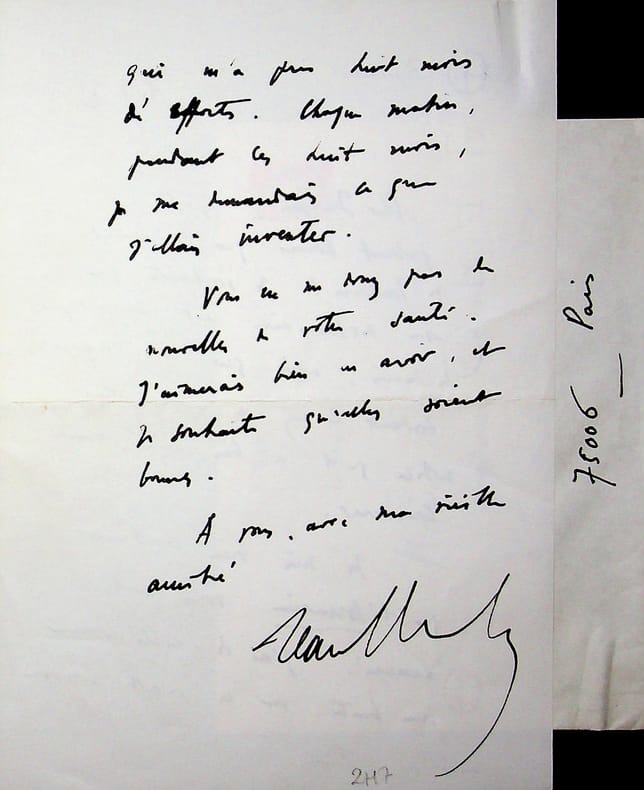 qui m'a pris huit mois
d'efforts. Chaque matin,
pendant ces huit mois,
je me demandais ce que
j'allais inventer.
Vous ne me donnez pas de
nouvelles de votre santé.
J'aimerais bien en avoir, et
je souhaite qu'elles soient
bonnes.
À vous, avec ma vieille
amitié
Jean
2117
75006 — Paris